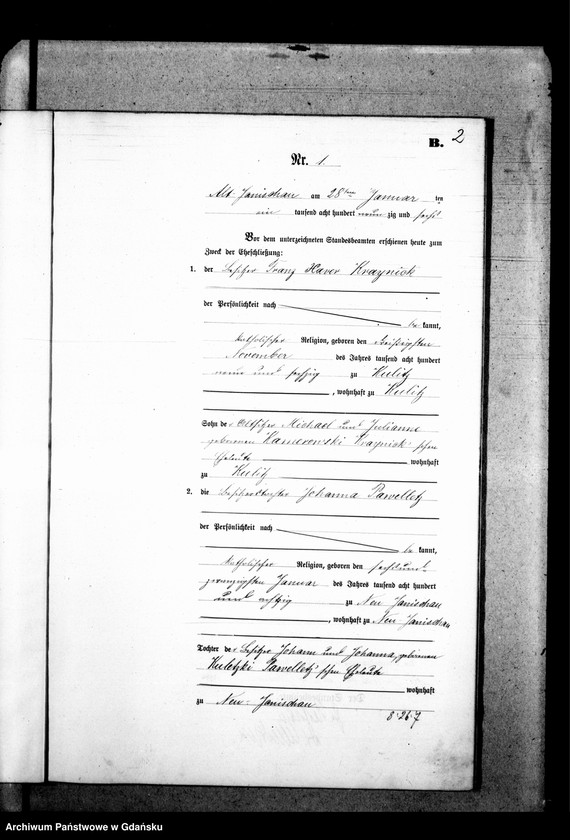 B. 2
Nr. 1.
Alt Janischau am 28ten Januar ten
ein tausend acht hundert neun zig und sechs
Vor dem unterzeichneten Standesbeamten erschienen heute zum
Zweck der Eheschließung:
1. der Besitzer Franz Xaver Kraynick
der Persönlichkeit nach
be kannt,
katholischer Religion, geboren den dreißigsten
November des Jahres tausend acht hundert
neun und sechzig zu Kulitz
, wohnhaft zu Kulitz
Sohn der Altsitzer Michael und Julianne
geborenen Kamerowski Kraynick'schen
Eheleute wohnhaft
zu Kulitz
2. die Besitzertochter Johanna Pawelletz
der Persönlichkeit nach
be kannt,
katholischer Religion, geboren den sechsund-
zwanzigsten Januar des Jahres tausend acht hundert
und achtzig zu Neu Janischau
, wohnhaft zu Neu Janischau
Tochter der Besitzer Johann und Johanna, geborenen
Kuletzki Pawelletz'schen Eheleute
wohnhaft
zu Neu-Janischau
8267
Archiwum Państwowe w Gdańsku